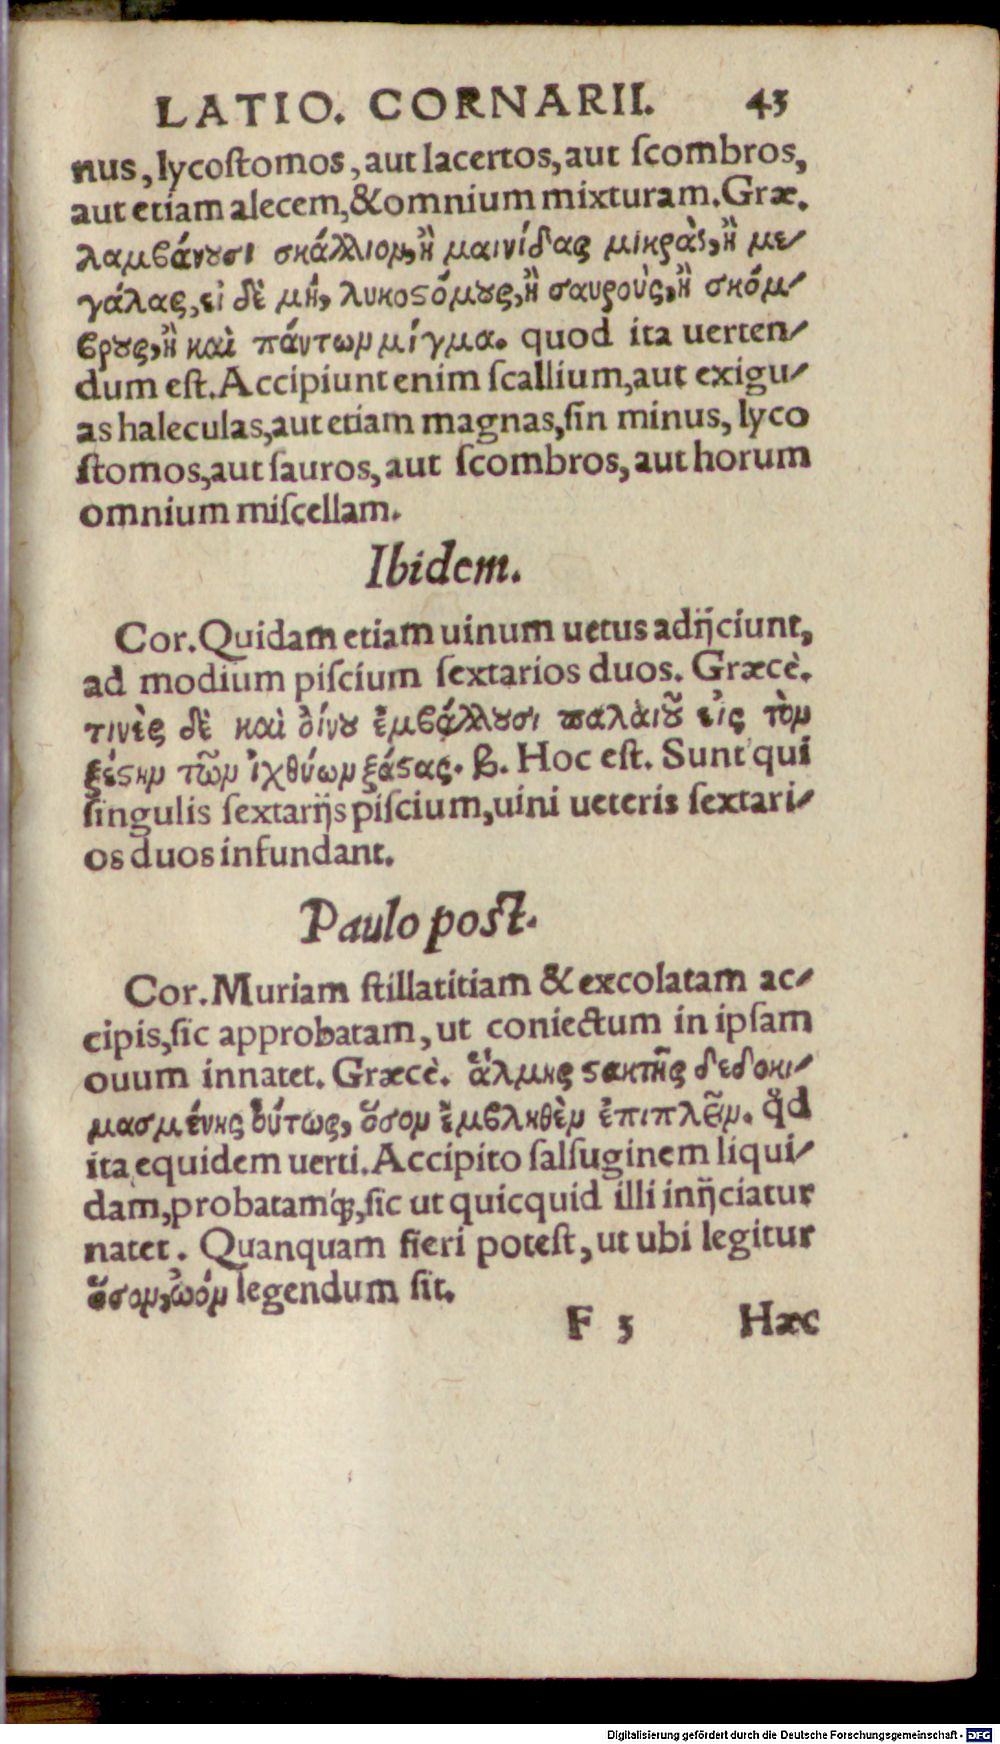 LATIO. CORNARII. 43
nus, lycoſtomos, aut lacertos, aut ſcombros,
aut etiam alecem, & omnium mixturam. Græ.
λαμβάνουσι σκάλλιον, ἢ μαινίδας μικρὰς, ἢ με/
γάλας, εἰ δὲ μή, λυκοστόμους, ἢ σαυροὺς, ἢ σκόμ/
βρους, ἢ καὶ πάντων μίγμα. quod ita uerten/
dum eſt. Accipiunt enim ſcallium, aut exigu/
as haleculas, aut etiam magnas, ſin minus, lyco
ſtomos, aut ſauros, aut ſcombros, aut horum
omnium miſcellam.
Ibidem.
Cor. Quidam etiam uinum uetus adijciunt,
ad modium piſcium ſextarios duos. Græcè.
τινὲς δὲ καὶ ὀίνου ἐμβάλλουσι παλαιοῦ εἰς τὸν
ξέστην τῶν ἰχθύων ξάστας. β. Hoc eſt. Sunt qui
ſingulis ſextarijs piſcium, uini ueteris ſextari/
os duos infundant.
Paulo poſt.
Cor. Muriam ſtillatitiam & excolatam ac/
cipis, ſic approbatam, ut coniectum in ipſam
ouum innatet. Græcè. ἅλμης στακτῆς δεδοκι/
μασμένης ὅυτως, ὅσον ἐμβληθὲν ἐπιπλεῖν. qd̃
ita equidem uerti. Accipito ſalſuginem liqui/
dam, probatamq́;, ſic ut quicquid illi inijciatur
natet. Quanquam fieri poteſt, ut ubi legitur
ὅσον, ὠόν legendum ſit.
F 3 Hæc
Digitalisierung gefördert durch die Deutsche Forschungsgemeinschaft - DFG